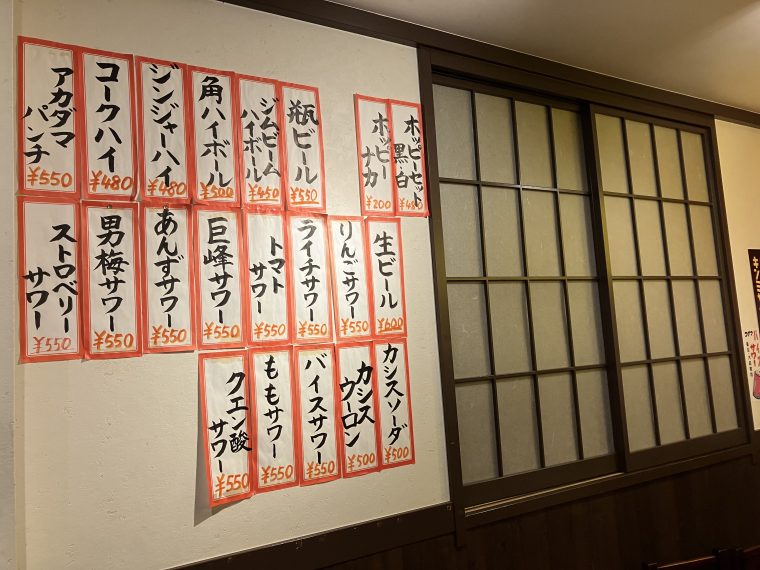 ホッピーセット
黒・白
¥480
ホッピー
ナカ
¥200
瓶ビール
¥550
ジムビーム
ハイボール
¥450
角ハイボール
¥500
ジンジャーハイ
¥480
コークハイ
¥480
アカダマ
パンチ
¥550
生ビール
¥600
りんごサワー
¥550
ライチサワー
¥550
トマト
サワー
¥550
巨峰サワー
¥550
あんずサワー
¥550
男梅サワー
¥550
ストロベリー
サワー
¥550
カシスソーダ
¥500
カシス
ウーロン
¥500
バイスサワー
¥550
ももサワー
¥550
クエン酸
サワー
¥550